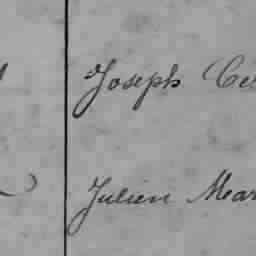 Joseph
Julien Mar